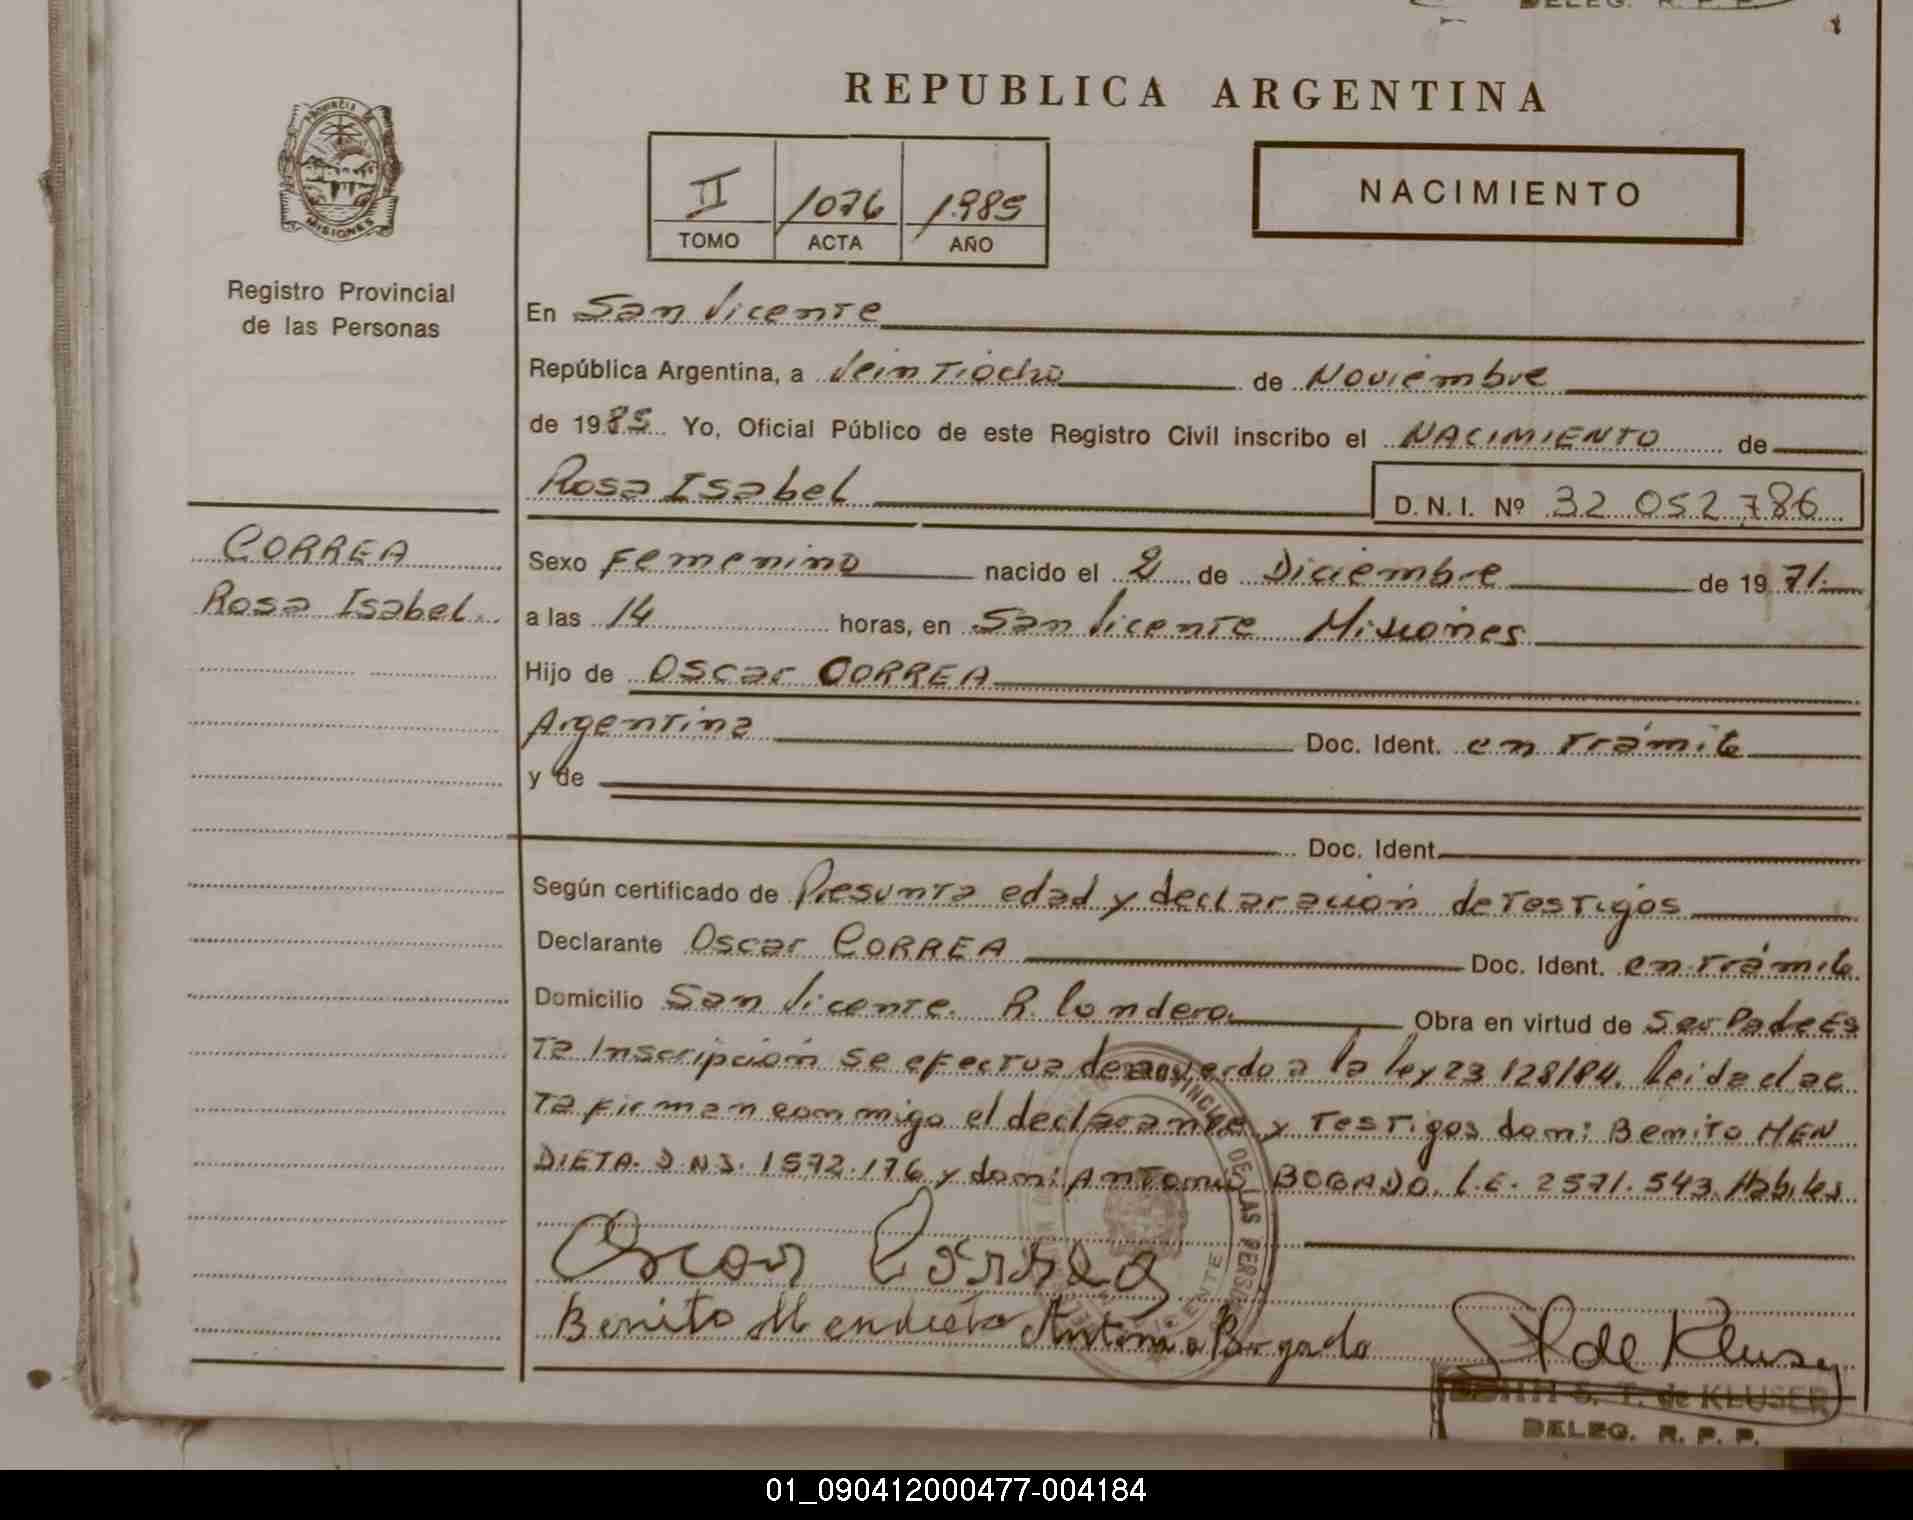 DELEG. R. P. P.
REPUBLICA ARGENTINA
PROVINCIA DE
MISIONES
Registro Provincial
de las Personas
II 1076 1.985
TOMO ACTA AÑO
NACIMIENTO
En San Vicente
República Argentina, a Veintiocho de Noviembre
de 1985 Yo, Oficial Público de este Registro Civil inscribo el NACIMIENTO de
Rosa Isabel D.N.I. Nº 32 052,786
CORREA
Rosa Isabel
Sexo Femenino nacido el 2 de Diciembre de 1971
a las 14 horas, en San Vicente Misiones
Hijo de Oscar CORREA
Argentina Doc. Ident. en trámite
y de
Doc. Ident.
Según certificado de Presunta edad y declaración de Testigos
Declarante Oscar CORREA Doc. Ident. en trámite
Domicilio San Vicente. R. Londero Obra en virtud de Ser Padre Es
ta Inscripción se efectua de acuerdo a la ley 23 128/84. Leida el ac
ta firman conmigo el declarante y Testigos don: Benito MEN
DIETA. D.N.I. 1572.176 y don: Antonio BOGADO. L.E. 2571.543. Habiles
Oscar Correa
Benito Mendieta Antonio Borgado
S T de Kluser
S. T. de KLUSER
DELEG. R. P. P.
01_090412000477-004184